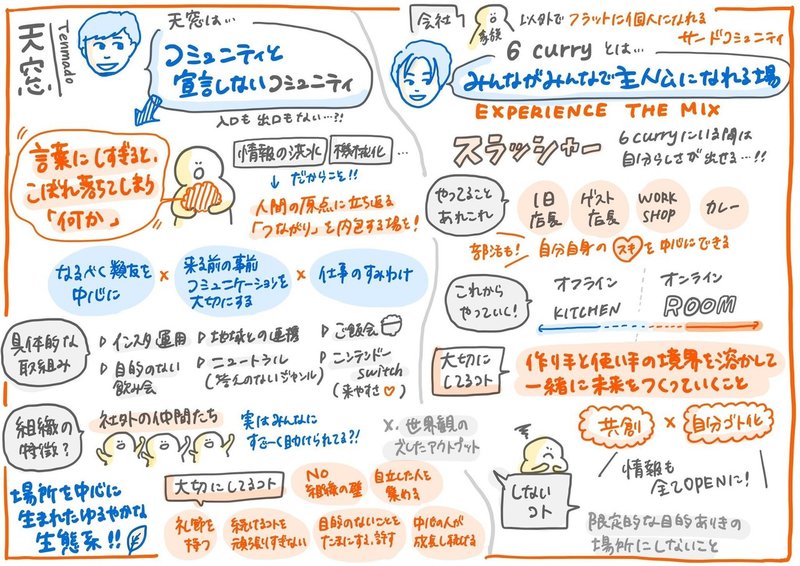 天窓
Tenmado
天窓は…
コミュニティと
宣言しないコミュニティ
入口も出口もない…?!
言葉にしすぎると、
こぼれ落ちてしまう
「何か」
情報の洪水
機械化…
だからこそ!!
人間の原点に立ち返る
「つながり」を内包する場を!
なるべく類友を
中心に
×
来る前の事前
コミュニケーションを
大切にする
×
仕事のすみわけ
具体的な
取組み
インスタ運用
地域との連携
ご飯会
目的のない
飲み会
ニュートラル
(答えのないジャンル)
ニンテンドー
switch
(来やすさ♡)
組織の
特徴?
社外の仲間たち
実はみんなに
すごーく助けられてる?!
×. 世界観の
ズレたアウトプット
場所を中心に
生まれたゆるやかな
生態系!!
大切にしてるコト
NO
組織の壁
自立した人を
集める
礼節を
持つ
続けるコトを
頑張りすぎない
目的のないことを
たまにする、許す
中心の人が
成長し続ける
会社
家族
以外でフラットに個人になれる
サードコミュニティ
6 curryとは…
みんながみんなで主人公になれる場
EXPERIENCE THE MIX
スラッシャー
6curryにいる間は
自分らしさが出せる…!!
やってること
あれこれ
1日
店長
ゲスト
店長
WORK
SHOP
カレー
部活も!
自分自身のスキを中心にできる
これから
やっていく!
オフライン
KITCHEN
オンライン
ROOM
大切に
してるコト
作り手と使い手の境界を溶かして
一緒に未来をつくっていくこと
共創
×
自分ゴト化
情報も
全てOPENに!
しない
コト
限定的な目的ありきの
場所にしないこと